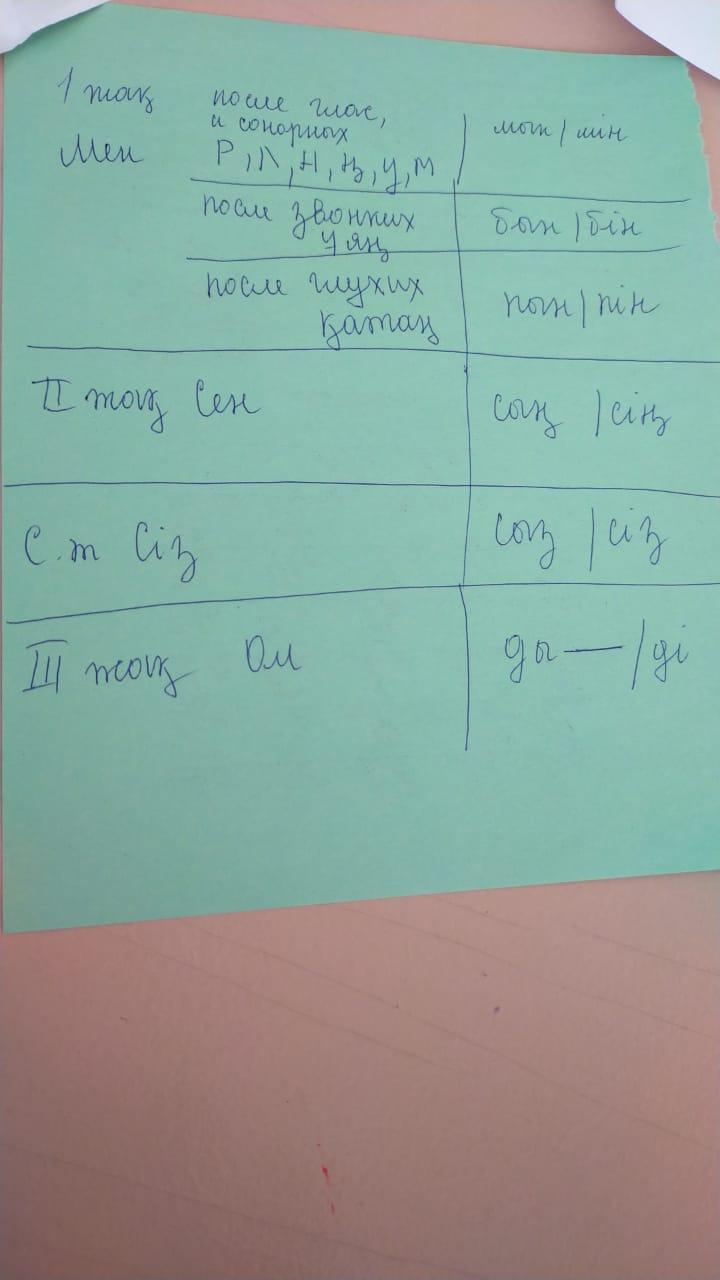 1 жақ после глас, мын / мін
и сонорных
Мен Р, Л, Н, ң, у, м
после звонких бын / бін
ұяң
после глухих пын / пін
қатаң
II жақ Сен сың / сің
С.т Сіз сыз / сіз
III жақ Ол ды — / ді